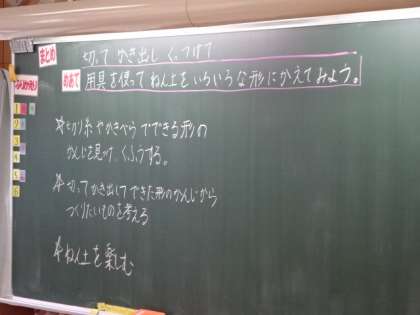 まとめ
切って かき出し くっつけて
めあて
用具を使ってねん土をいろいろな形にかえてみよう。
切り糸やかきべらでできる形の
かんじを見つけ、くふうする。
切ってかき出してできた形のかんじから
つくりたいものを考える
ねん土を楽しむ
1
2
3
4
5
6